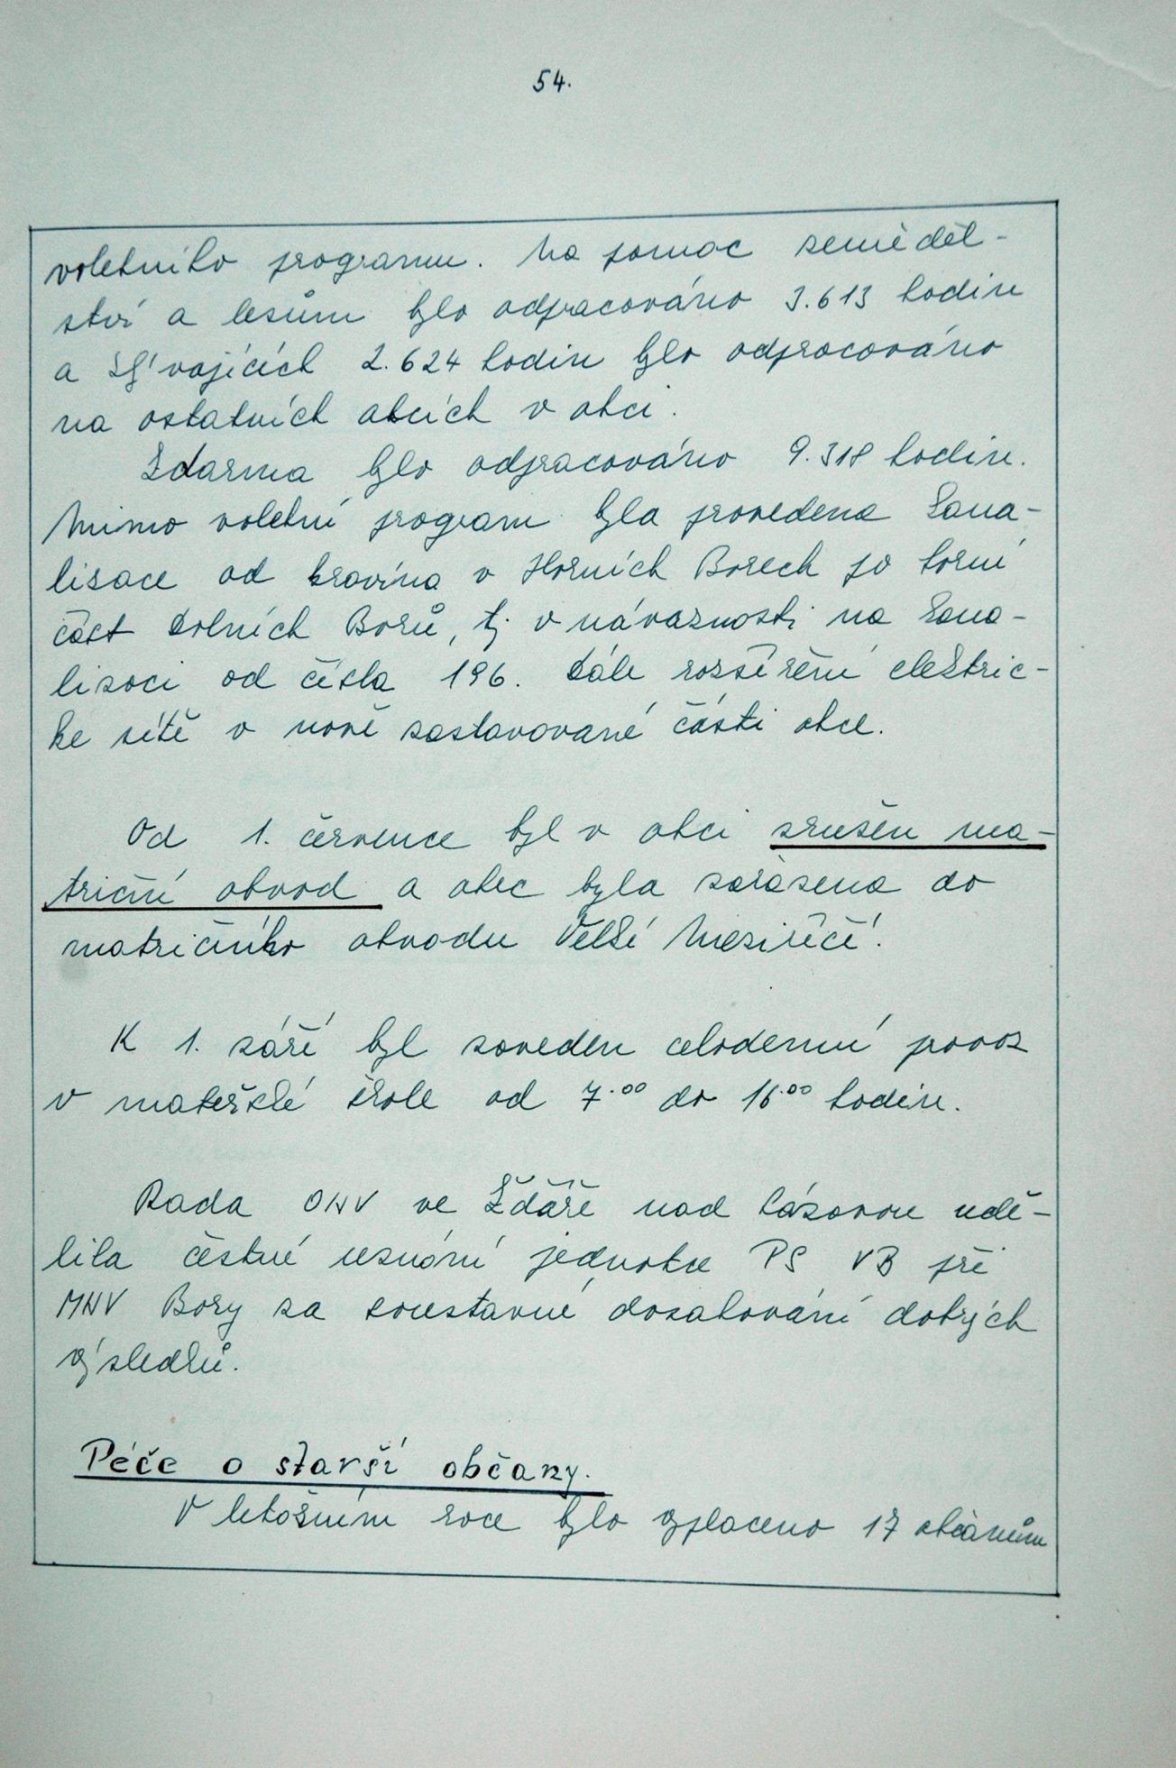 54.
volebního programu. Na pomoc zeměděl-
ství a lesům bylo odpracováno 3.613 hodin
a zbývajících 2.624 hodin bylo odpracováno
na ostatních akcích v obci.
Zdarma bylo odpracováno 9.318 hodin.
Mimo volební program byla provedena kana-
lisace od kravína v Horních Borech po horní
část Dolních Borů, tj. v návaznosti na kana-
lizaci od čísla 196. Dále rozšíření elektric-
ké sítě v nově zastavované části obce.
Od 1. července byl v obci zrušen ma-
triční obvod a obec byla zařazena do
matričního obvodu Velké Meziříčí.
K 1. září byl zaveden celodenní provoz
v mateřské škole od 7.00 do 16.00 hodin.
Rada ONV ve Žďáře nad Sázavou udě-
lila čestné uznání jednotce PS VB při
MNV Bory za soustavné dosahování dobrých
výsledků.
Péče o starší občany.
V letošním roce bylo vyplaceno 17 občanům